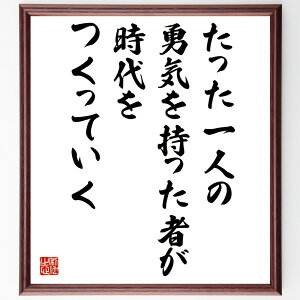 たった一人の
勇気を持った者が
時代を
つくっていく